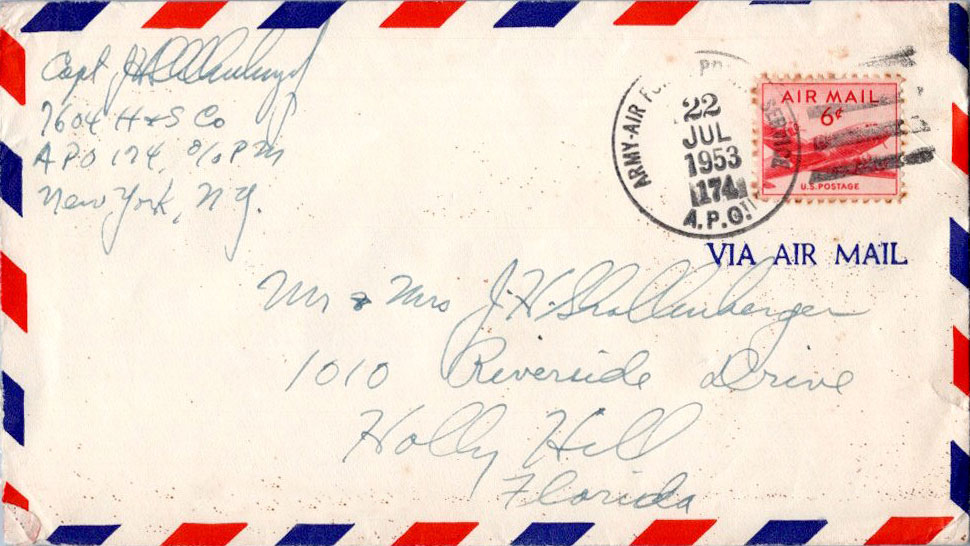 Capt J H Shollenberger
7604 H & S Co
APO 174, c/o PM
New York, N.Y.
ARMY-AIR FO PO SERVICE
22
JUL
1953
174
A.P.O.
AIR MAIL
6¢
U.S. POSTAGE
VIA AIR MAIL
Mr & Mrs J. H. Shollenberger
1010 Riverside Drive
Holly Hill
Florida